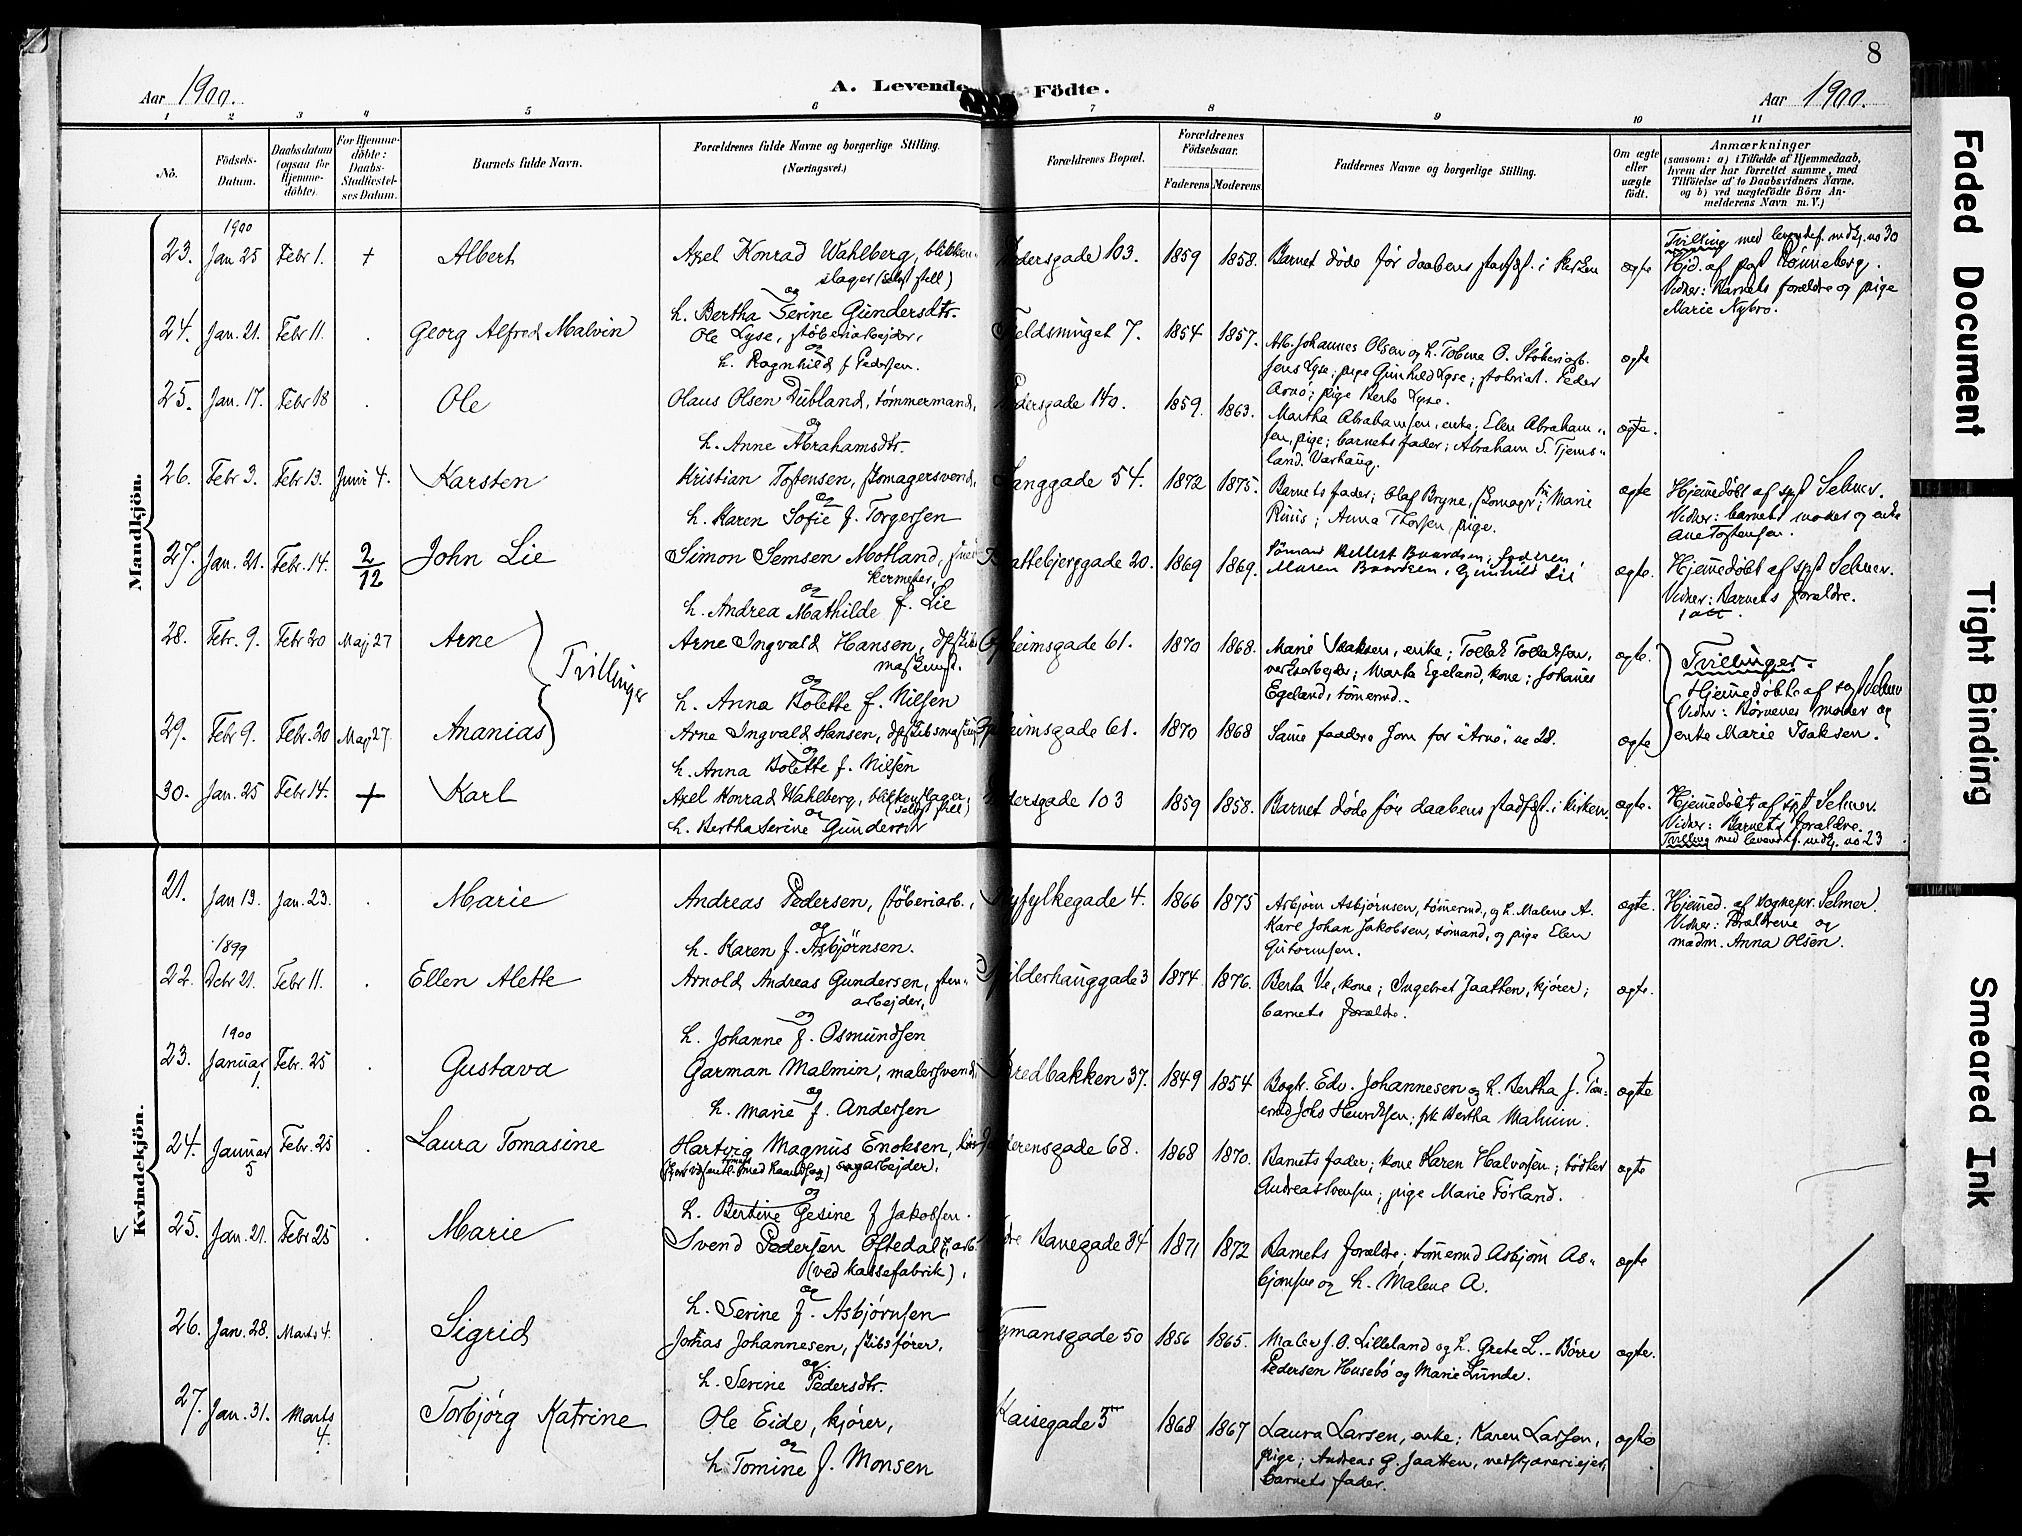 8
Aar 1900.
A. Levende Födte.
Aar 1900.
1 2 3 4 5 6 7 8 9 10 11
No.
Födsels-Datum.
Daabsdatum (ogsaa for Hjemmedöbte).
For Hjemmedöbte: Daabs-Stadfæstelses Datum.
Barnets fulde Navn.
Forældrenes fulde Navne og borgerlige Stilling.
(Næringsvei.)
Forældrenes Bopæl.
Forældrenes Födselsaar.
Faderens Moderens
Faddernes Navne og borgerlige Stilling.
Om ægte eller uægte födt.
Anmærkninger
(saasom: a) i Tilfælde af Hjemmedaab, hvem der har forrettet samme, med Tilföielse af to Daabsvidners Navne, og b) ved uægtefödte Börn Anmelderens Navn m. V.)
Mandkjön.
1900
23. Jan 25 Febr 1. + Albert
Axel Konrad Wahlberg, blikkenslager (selvst still)
og
h. Bertha Serine Gundersdtr.
Pedersgade 103. 1859 1858. Barnet döde før daabens stadfæst. i kirken ægte
Tvilling med levendef. mdkj. no 30
Hjd. af pgst Rönneberg.
Vidner: Barnets forældre og pige
Marie Nybro.
24. Jan. 21. Febr 11. . Georg Alfred Malvin
Ole Lyse, støberiarbejder,
og
h. Ragnhild f Pedersen.
7. 1854 1857.
Arb. Johannes Olsen og h. Tobine O. Stöberiarb.
Jens Lyse; pige Gunhild Lyse; Peder
Arnö; pige Berte Lyse.
ægte
25. Jan. 17. Febr 18 . Ole
Olaus Olsen Dubland, tømmermand,
og
h. Anne Abrahamsdtr.
Pedersgade 140. 1859. 1863.
Martha Abrahamsen, enke; Elen Abrahamsen, pige; barnets fader; Abraham S. Tjemsland. Varhaug.
ægte.
26. Febr 3. Febr 13. Juni 4. Karsten
Kristian Tostensen, skomagersvend,
og
h. Karen Sofie f. Torgersen
Langgade 54. 1872 1875.
Barnets fader; Olaf Bryne, skomagr; Marie
; Anna Thorsen, pige.
ægte
Hjemedöbt af spst Selmer.
Vidner: barnets moder og enke
Ane Tostensen.
27. Jan. 21. Febr. 14. 2/12 John Lie
Simon Semsen Motland,
og
h. Andrea Mathilde f. Lie
20. 1869 1869.
Maren Baardsen, Gunhild Lie
ægte.
Hjemedöbt af spst Selmer.
Vidner: Barnets forældre.
28. Febr. 9. Febr 20 Maj 27 Arne
Tvillinger
Arne Ingvald Hansen,
og
h. Anna Bolette f. Nilsen
61. 1870 1868.
Marie Isaksen, enke; Tollak Tollaksen,
verksarbejder; Marta Egeland, kone; Johanes
Egeland, tömermd..
ægte.
Tvillinger.
Hjemedöbte af spst Selmer
Vidner: Börnenes moder og
enke Marie Isaksen.
29. Febr 9. Febr. 20 Maj 27. Ananias
Arne Ingvald Hansen,
og
h. Anna Bolette f. Nilsen
61. 1870 1868 Same faddere som for "Arne", no 28. ægte
30. Jan. 25 Febr 14. + Karl
Axel Konrad Wahlberg, blikkenslager,
(selvst still)
og
h. Bertha Serine Gundersen
Pedersgade 103 1859 1858. Barnet döde før daabens stadfæst. i kirken. ægte.
Hjemedöbt af spst Selmer.
Vidner: Barnets forældre.
Tvilling med levendef. mdkj. no 23
Kvindekjön.
21. Jan 13. Jan. 23. . Marie
Andreas Pedersen, støberiarb.,
og
h. Karen f. Asbjørnsen.
Ryfylkegade 4. 1866 1875
Asbjørn Asbjørnsen, tømermd, og h. Malene A.
Karl Johan Jakobsen, sömand, og pige Elen
Gutormsen.
ægte.
Hjemed. af sognepr. Selmer.
Vidner: Forældrene og
madm. Anna Olsen.
1899
22. Debr 21. Febr 11. . Ellen Alette
Arnold Andreas Gundersen, stenarbejder,
og
h. Johanne f. Osmundsen
Spilderhauggade 3 1874 1876.
Berta Ve, kone; Ingebret Jaatten, kjører;
barnets forældre.
ægte.
1900
23. Januar 1. Febr. 25 . Gustava
Garman Malmin, malersvend,
og
h. Marie f. Andersen
Bredbakken 37. 1849 1854
Bogh. Edv. Johannesen og h. Bertha J. Tömermd Johs Henriksen; frk Bertha Malmin.
ægte
24. Januar 5 Febr. 25 . Laura Tomasine
Hartvig Magnus Enoksen,
sagarbejder,
og
h. Bertine Gesine f Jakobsen.
Jæderensgade 68. 1868 1870.
Barnets fader; kone Karen Halvorsen; bödker
Andreas Svensen; pige Marie Förland.
ægte
25. Jan. 21. Febr 25 . Marie
Svend Pedersen Oftedal, arb.
(ved kassefabrik),
og
h. Serine f. Asbjørnsen
Banegade 34 1871 1872
Barnets forældre; tömermd Asbjörn Asbjörnsen og h. Malene A.
ægte
26. Jan. 28. Marts 4. . Sigrid
Jonas Johannesen, skibsfører,
og
h. Serine Pedersdtr.
Nymansgade 50 1856 1865.
Maler J. O. Lilleland og h. Grete L. – Börre
Pedersen Husebö og Marie Lunde.
ægte.
27. Jan. 31. Marts 4. Torbjørg Katrine
Ole Eide, kjører,
og
h Tomine f. Monsen
Kaisegade 3 1868 1867
Laura Larsen, enke; Karen Larsen,
pige; Andreas G. Jaatten,
barnets fader.
ægte
Faded Document
Tight Binding
Smeared Ink